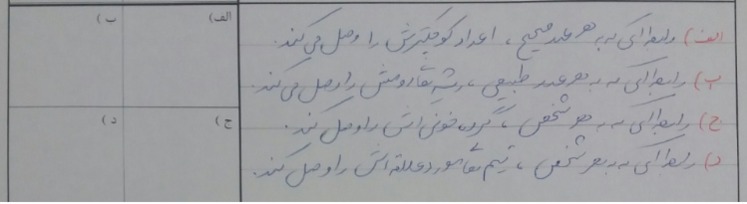 الف) رابطه‌ای که به هر عدد صحیح، اعداد کوچکترش را وصل می‌کند.
ب) رابطه‌ای که به هر عدد طبیعی، ریشه‌های دومش را وصل می‌کند.
ج) رابطه‌ای که به هر شخص، گروه خونی‌اش را وصل کند.
د) رابطه‌ای که به هر شخص، تیم مورد علاقه‌اش را وصل کند.
الف) ب)
ج) د)